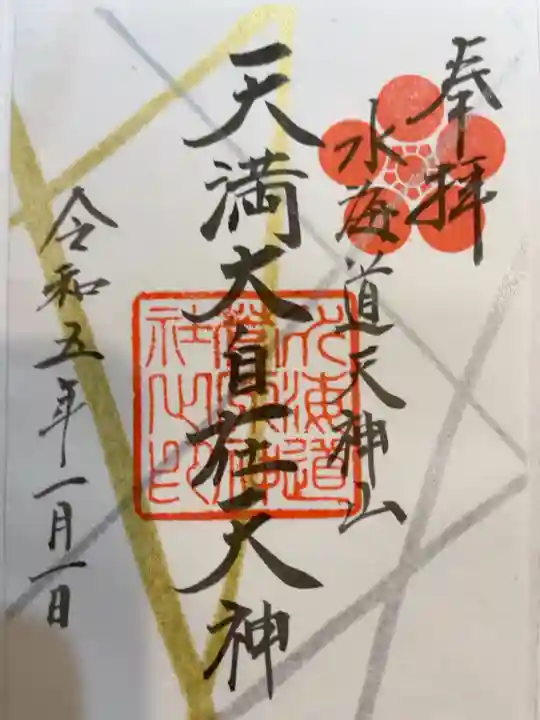 奉拝
水海道天神山
天満大自在天神
令和五年一月一日